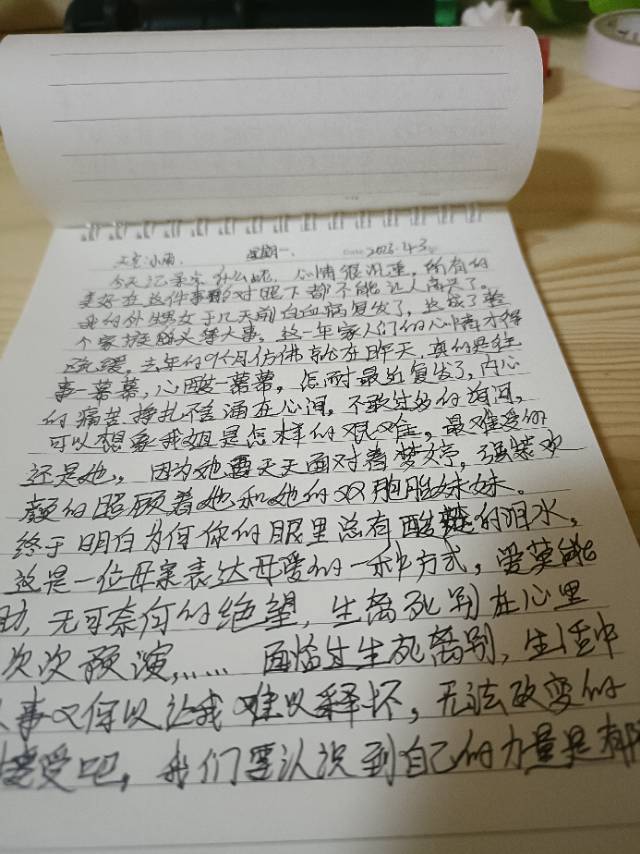 小雨. 星期一. Date 2023.4.3
今天记录点什么呢, 心情很沉重, 所有的
美好在这件事的对照下都不能让人高兴了。
我的外甥女于几天前白血病复发了, 这放了整
个家族的头等大事, 这一年家人们的心情才得
疏缓, 去年的9个月仿佛就在昨天, 真的是往
事一幕幕, 心酸一幕幕, 怎耐最近复发了, 内心
的痛苦挣扎在涌在心间, 不敢过多的询问,
可以想象我姐是怎样的艰难, 最难受的
还是她, 因为她要天天面对着梦婷, 强装欢
颜的照顾着她和她的双胞胎妹妹。
终于明白为何你的眼里总有酸楚的泪水,
这是一位母亲表达母爱的一种方式, 爱莫能
助, 无可奈何的绝望, 生离死别在心里
次次预演,…… 面临过生死离别, 生活中
事又何以让我难以释怀, 无法改变的
接受吧, 我们要认识到自己的力量是有限